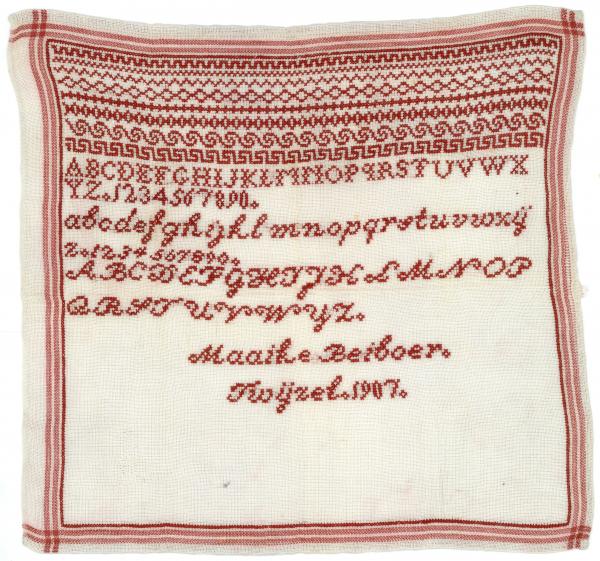 ABCDEFGHIJKLMNOPQRSTUVWX
YZ.1234567890.
abcdefghijklmnopqrstuvwxij
z.1234567890.
ABCDEFGHIJKLMNOP
QRSTUVWYZ.
Maaike Beiboer.
Twijzel.1907.